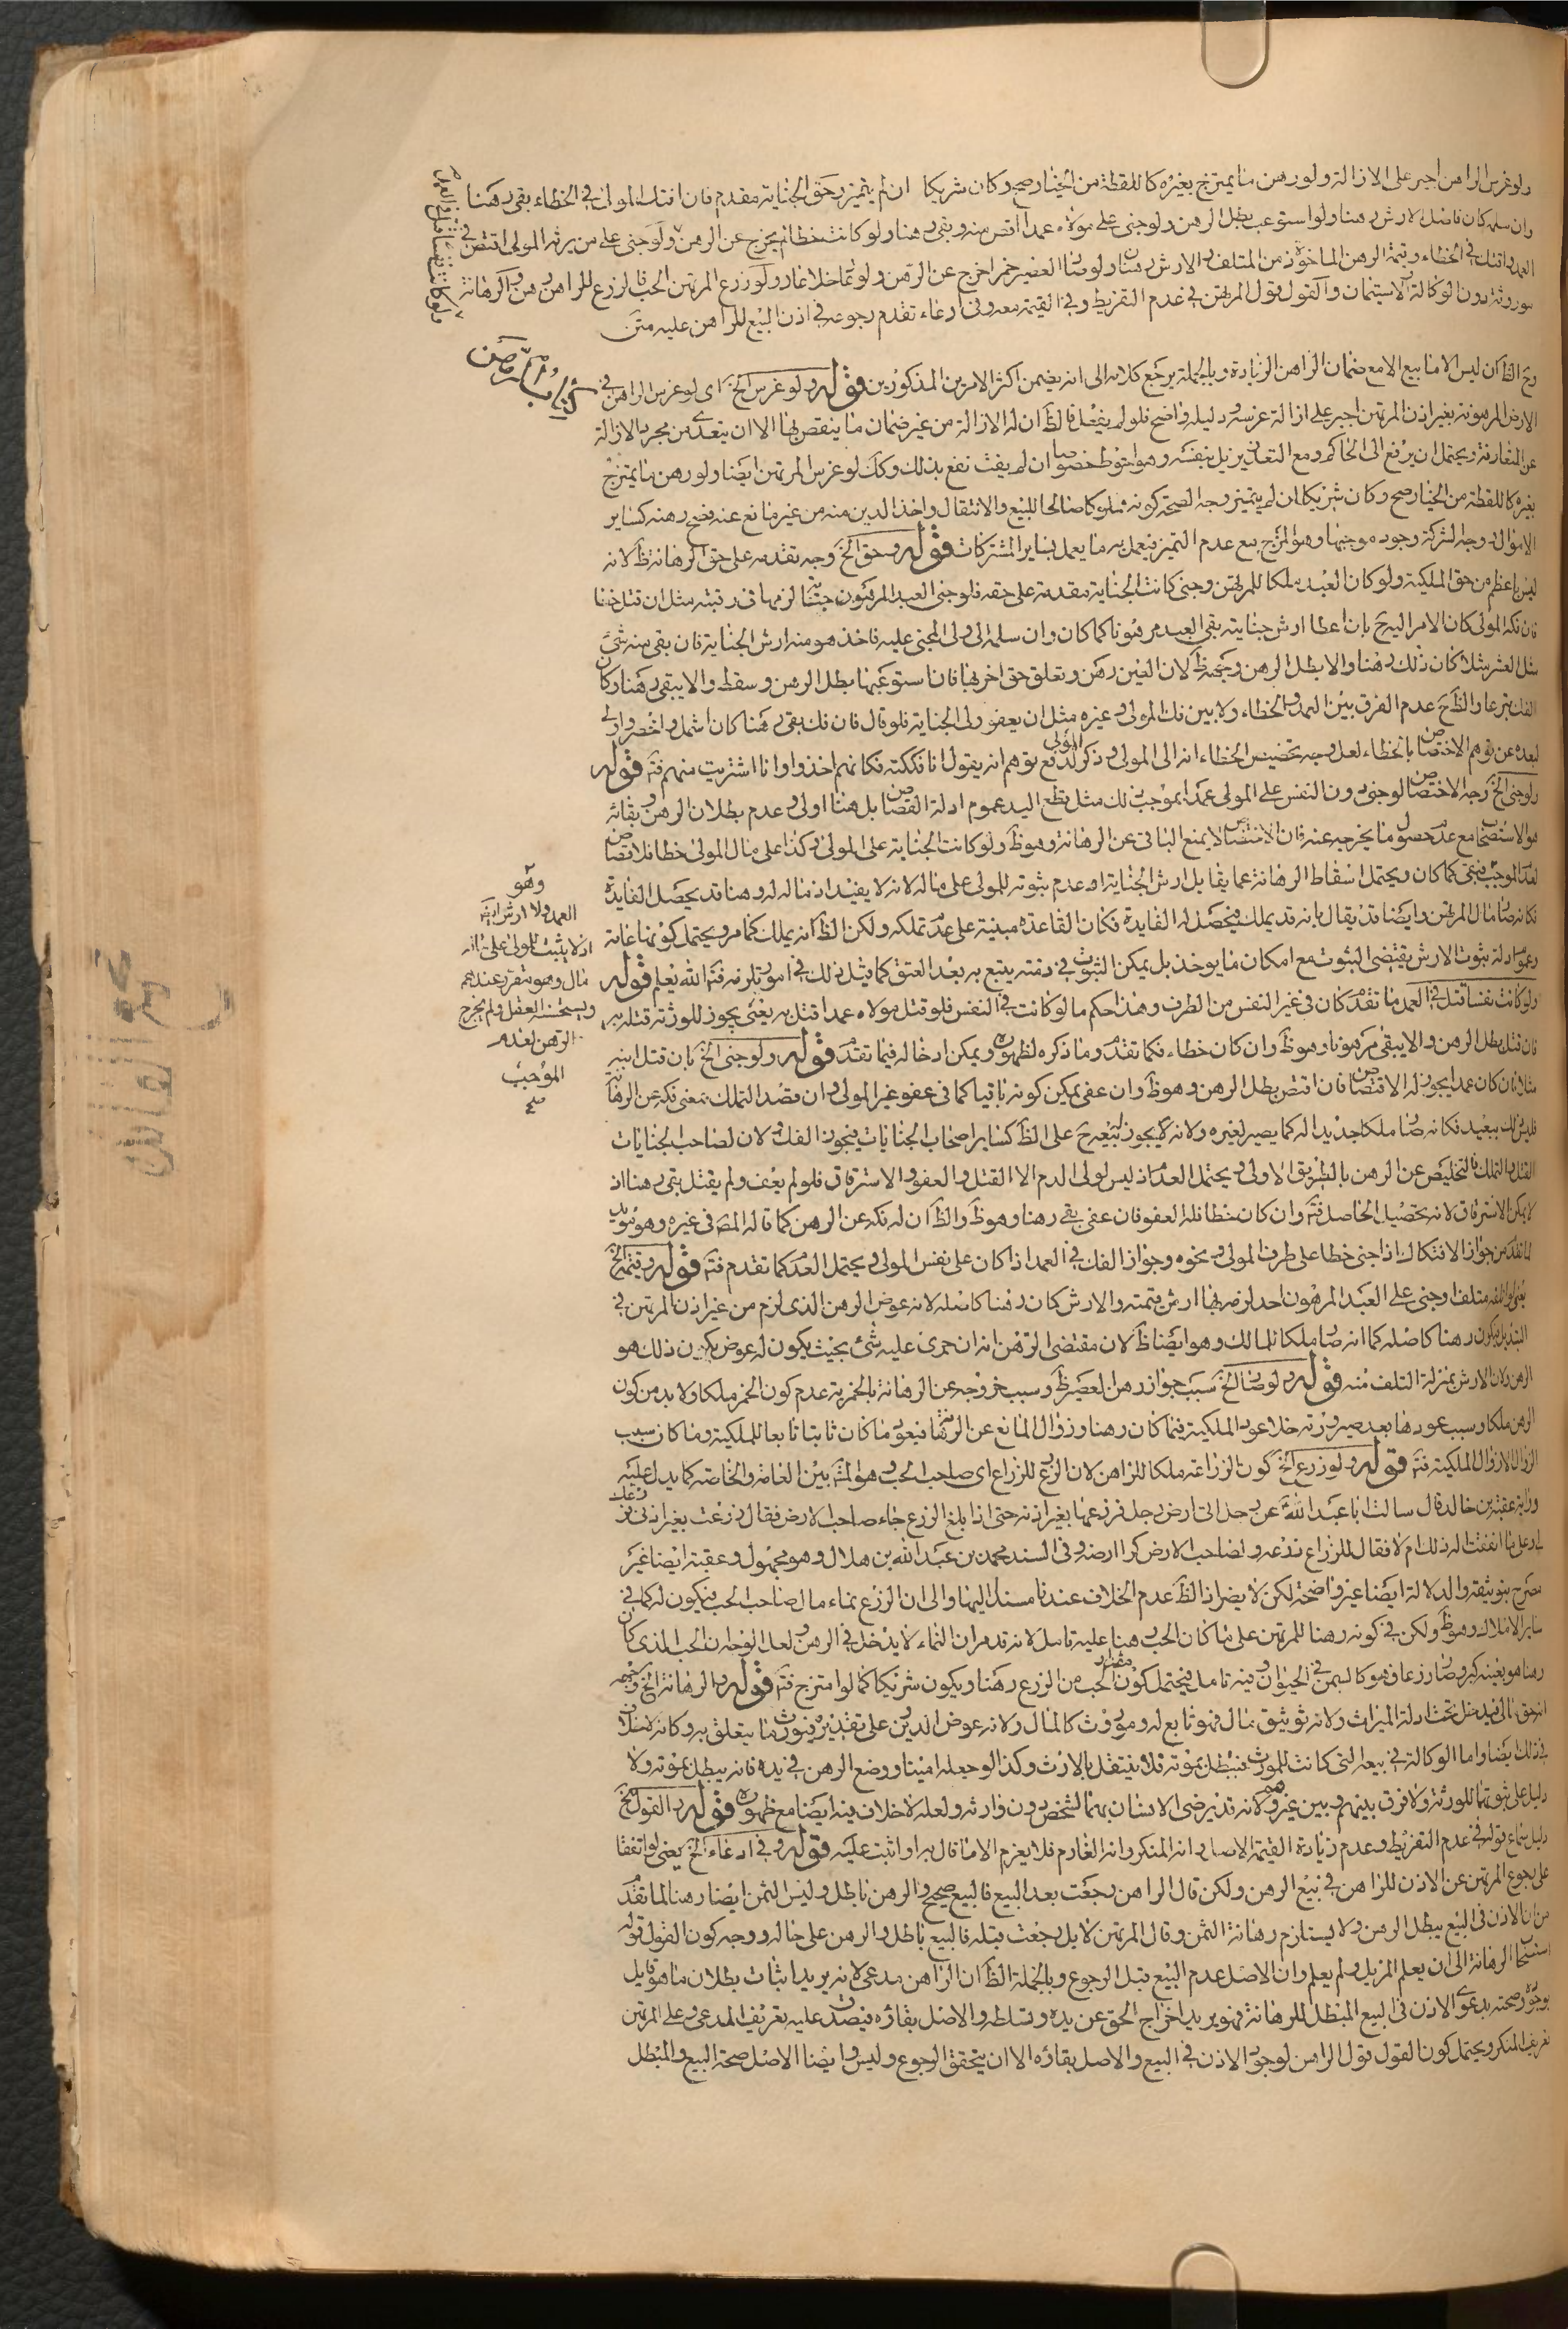 ولو غرس الراهن اجبر على الازالة ولو رهن ما يمتزج بغيره كاللقطة من الخيار صح وكان شريكا ان لم يتميز وحق الجناية مقدم فان افتك المولى في الخطاء بقى رهنا
وان سلمه كان فاضل الارش رهنا ولو استوعب بطل الرهن ولو جنى على مولاه عمدا اقتص منه وبقى رهنا ولو كانت خطا لم يخرج عن الرهن ولو جنى على من يرثه المولى اقتص في
العمد وافتك في الخطاء وقيمة الرهن الماخوذة من المتلف والارش رهنا ولو صار العصير خمرا خرج عن الرهن ولو عاد خلا عاد ولو زرع المرتهن الحب فالزرع للراهن رهن والرهانة
موروثة دون الوكالة والاستيمان والقول قول المرتهن في عدم التفريط وفي القيمة معه وفي ادعاء تقدم رجوعه في اذن البيع للراهن عليه متن
ولو كانت نفسا قتل في العمد
كتاب الرهن
وح الظ ان ليس الا ما بيع الا مع ضمان الراهن الزيادة وبالجملة يرجع كلامه الى انه يضمن اكثر الامرين المذكورين قوله ولو غرس الخ اى لو غرس الراهن في
الارض المرهونة بغير اذن المرتهن اجبر على ازالة غرسه ودليله واضح فلو لم يفعل فالظ ان له الازالة من غير ضمان ما ينقص بها الا ان يتعدى من مجرد الازالة
عن المقارنة ويحتمل ان يرفع الى الحاكم ومع التعذر يزيل بنفسه وهو احوط خصوصا ان لم يفت نفع بذلك وكك لو غرس المرتهن ايضا ولو رهن ما يمتزج
بغيره كاللقطة من الخيار صح وكان شريكا ان لم يتميز وجه الصحة كونه مملوكا صالحا للبيع والانتقال واخذ الدين منه من غير مانع عنه فصح رهنه كساير
الاموال ووجه الشركة وجود موجبها وهو المزج مع عدم التميز فيعمل به ما يعمل بساير المشتركات قوله وحق الخ وجه تقدمه على حق الرهانة ظ لانه
ليس باعظم من حق الملكية ولو كان العبد ملكا للمرتهن وجنى كانت الجناية مقدمة على حقه فلو جنى العبد المرهون جناية لزمها في رقبته مثل ان قتل خطا
فان فكه المولى كان الامر اليه ح بان اعطا ارش جنايته بقى العبد مرهونا كما كان وان سلمه الى ولى المجنى عليه فاخذ هو منه ارش الجناية فان بقى منه شئ
مثل العشر مثلا كان ذلك رهنا والا بطل الرهن وجهه ظ لان العين رهن وتعلق حق اخر بها فان استوعبها بطل الرهن وسقط والا يبقى رهنا وكان
الفك تبرعا والظ ح عدم الفرق بين العمد والخطاء ولا بين فك المولى وغيره مثل ان يعفو ولى الجناية فلو قال فان فك بقى رهنا كان اشمل واخصر واولى
لبعده عن توهم الاختصاص بالخطاء لعل وجه تخصيص الخطاء انه الى المولى وذكر المولى لدفع توهم انه يقول انا فككته فكانهم اخذوا وانا اشتريت منهم فتم قوله
ولو جنى الخ وجه الاختصاص لو جنى دون النفس على المولى عمدا بموجب ذلك مثل قطع اليد عموم ادلة القصاص بل هنا اولى وعدم بطلان الرهن وبقائه
هو الاستصحاب مع عدم حصول ما يخرجه عنه فان الاقتصاص لا يمنع الباقى عن الرهانة وهو ظ ولو كانت الجناية على المولى وكذا على مال المولى خطا فلا قصاص
لعدم الموجب فبقى كما كان ويحتمل اسقاط الرهانة عما يقابل ارش الجناية او عدم ثبوته للمولى على ماله لانه لا يفيد اذ ماله له وهنا قد يحصل الفايدة
فكانه صار مال المرتهن وايضا قد يقال بانه قد يملك فيحصل له الفايدة فكان القاعدة مبنية على عدم تملكه ولكن الظ انه يملك كما مر ويحتمل كونها عامة
وعموم ادلة ثبوت الارش يقتضى الثبوت مع امكان ما يوخذ بل يمكن الثبوت في ذمته يتبع به بعد العتق كما قيل ذلك في امور تلزمه فتم الله يعلم قوله
ولو كانت نفسا قتل في العمد ما تقدم كان في غير النفس من الطرف وهذا حكم ما لو كانت في النفس فلو قتل مولاه عمدا قتل به يعنى يجوز للورثة قتله به
فان قتل بطل الرهن والا يبقى مرهونا وهو ظ وان كان خطاء فكما تقدم وما ذكره لظهوره ويمكن ادخاله فيما تقدم قوله ولو جنى الخ بان قتل ابنه
مثلا فان كان عمدا يجوز له الاقتصاص فان اقتص بطل الرهن وهو ظ وان عفى يمكن كونه باقيا كما في عفو غير المولى وان قصد التملك بمعنى فكه عن الرهانة
فليس ذلك ببعيد فكانه صار ملكا جديدا له كما يصير لغيره ولانه يجوز بيعه ح على الظ كساير اصحاب الجنايات فيجوز الفك ولان لصاحب الجنايات
القتل والتملك فالتخليص عن الرهن بالطريق الاولى ويحتمل العدم اذ ليس لولى الدم الا القتل والعفو والاسترقاق فلو لم يعف ولم يقتل بقى رهنا اذ
لا يمكن الاسترقاق لانه تحصيل الحاصل فتم وان كان خطا فله العفو فان عفى بقى رهنا وهو ظ والظ ان له فكه عن الرهن كما قاله المص في غيره وهو مؤيد
لما تقدم من جواز الافتكاك اذا جنى خطا على طرف المولى ونحوه وجواز الفك في العمد اذا كان على نفس المولى ويحتمل العدم كما تقدم فتم قوله وقيمة الخ
يعنى لو اتلفه متلف او جنى على العبد المرهون احد لزمه بها ارش فقيمته والارش كان رهنا كاصله لانه عوض الرهن الذى لزم من غير اذن المرتهن في
التبديل فيكون رهنا كاصله كما انه صار ملكا للمالك وهو ايضا ظ لان مقتضى الرهن انه ان جرى عليه شئ بحيث يكون له عوض يكون ذلك هو
الرهن ولان الارش بمنزلة التلف منه قوله ولو صار الخ سبب جواز رهن العصير ظ وسبب خروجه عن الرهانة بالخمرية عدم كون الخمر ملكا ولا بد من كون
الرهن ملكا وسبب عودها بعد صيرورته خلا عود الملكية فيما كان رهنا وزوال المانع عن الرهانة فيعود ما كان ثابتا تابعا للملكية وما كان سبب
الزوال الا زوال الملكية فتم قوله ولو زرع الخ كون الزراعة ملكا للراهن لان الزرع للزراع اى صاحب الحب وهو المشهور بين العامة والخاصة كما يدل عليه
رواية عقبة بن خالد قال سالت ابا عبد الله عن رجل اتى ارض رجل فزرعها بغير اذنه حتى اذا بلغ الزرع جاء صاحب الارض فقال زرعت بغير اذنى فزرعك
لى وعلى ما انفقت اله ذلك ام لا فقال للزراع زرعه ولصاحب الارض كرا ارضه وفي السند محمد بن عبد الله بن هلال وهو مجهول وعقبة ايضا غير
مصرح بتوثيقه والدلالة ايضا غير واضحة لكن لا يضر اذ الظ عدم الخلاف عندنا مسندا اليها والى ان الزرع نماء مال صاحب الحب فيكون له كما في
ساير الاملاك وهو ظ ولكن في كونه رهنا للمرتهن على ما كان الحب رهنا عليه تامل لانه قد مر ان النماء لا يدخل في الرهن ولعل الوجه ان الحب الذى كان
رهنا هو بعينه كبر وصار زرعا فهو كالسمن في الحيوان وفيه تامل فيحتمل كون مقدار الحب من الزرع رهنا ويكون شريكا كما لو امتزج فتم قوله والرهانة الخ وجهه
انه حق مالى فيدخل تحت ادلة الميراث ولانه توثيق بمال فهو تابع له وموروث كالمال ولانه عوض الدين على تقديره فيورث ما يتعلق به وكانه لا خلاف
في ذلك ايضا واما الوكالة في بيعه التى كانت للمورث فتبطل بموته فلا ينتقل بالارث وكذا لو جعله امينا ووضع الرهن في يده فانه يبطل بموته ولا
دليل على ثبوتها للورثة ولا فرق بينهم وبين غيرهم ولانه قد يرضى الانسان بهما لشخص دون وارثه ولعله لا خلاف فيه ايضا مع ظهوره قوله والقول الخ
دليل سماع قوله في عدم التفريط وعدم زيادة القيمة الاصل وانه المنكر وانه الغارم فلا يغرم الا ما قال به او اثبت عليه قوله وفي ادعاء الخ يعنى لو اتفقا
على رجوع المرتهن عن الاذن للراهن في بيع الرهن ولكن قال الراهن رجعت بعد البيع فالبيع صحيح والرهن باطل وليس الثمن ايضا رهنا لما تقدم
من ان الاذن في البيع يبطل الرهن ولا يستلزم رهانة الثمن وقال المرتهن لا بل رجعت قبله فالبيع باطل والرهن على حاله ووجه كون القول قوله
استصحاب الرهانة الى ان يعلم المزيل ولم يعلم وان الاصل عدم البيع قبل الرجوع وبالجملة الظ ان الراهن مدعى لانه يريد اثبات بطلان ما هو قايل
بوجوده وصحته بدعوى الاذن في البيع المبطل للرهانة فهو يريد اخراج الحق عن يده وتسلطه والاصل بقاؤه فيصدق عليه تعريف المدعى وعلى المرتهن
تعريف المنكر ويحتمل كون القول قول الراهن لوجود الاذن في البيع والاصل بقاؤه الا ان يتحقق الرجوع وليس وايضا الاصل صحة البيع والمبطل
وهو
العمد ولا ارش ايضا
اذ لا يثبت للمولى على ماله
مال وهو مقرر عندهم
ويستحسنه العقل ولم يخرج
الرهن لعدم
الموجب
صح